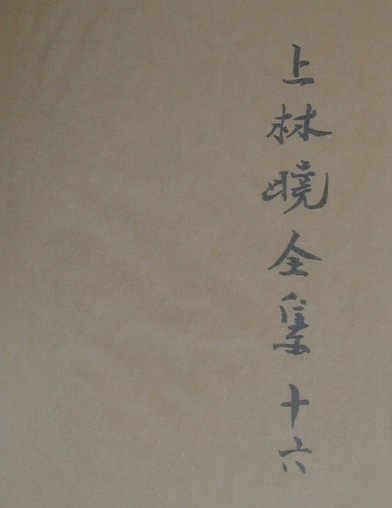 上林曉全集十六